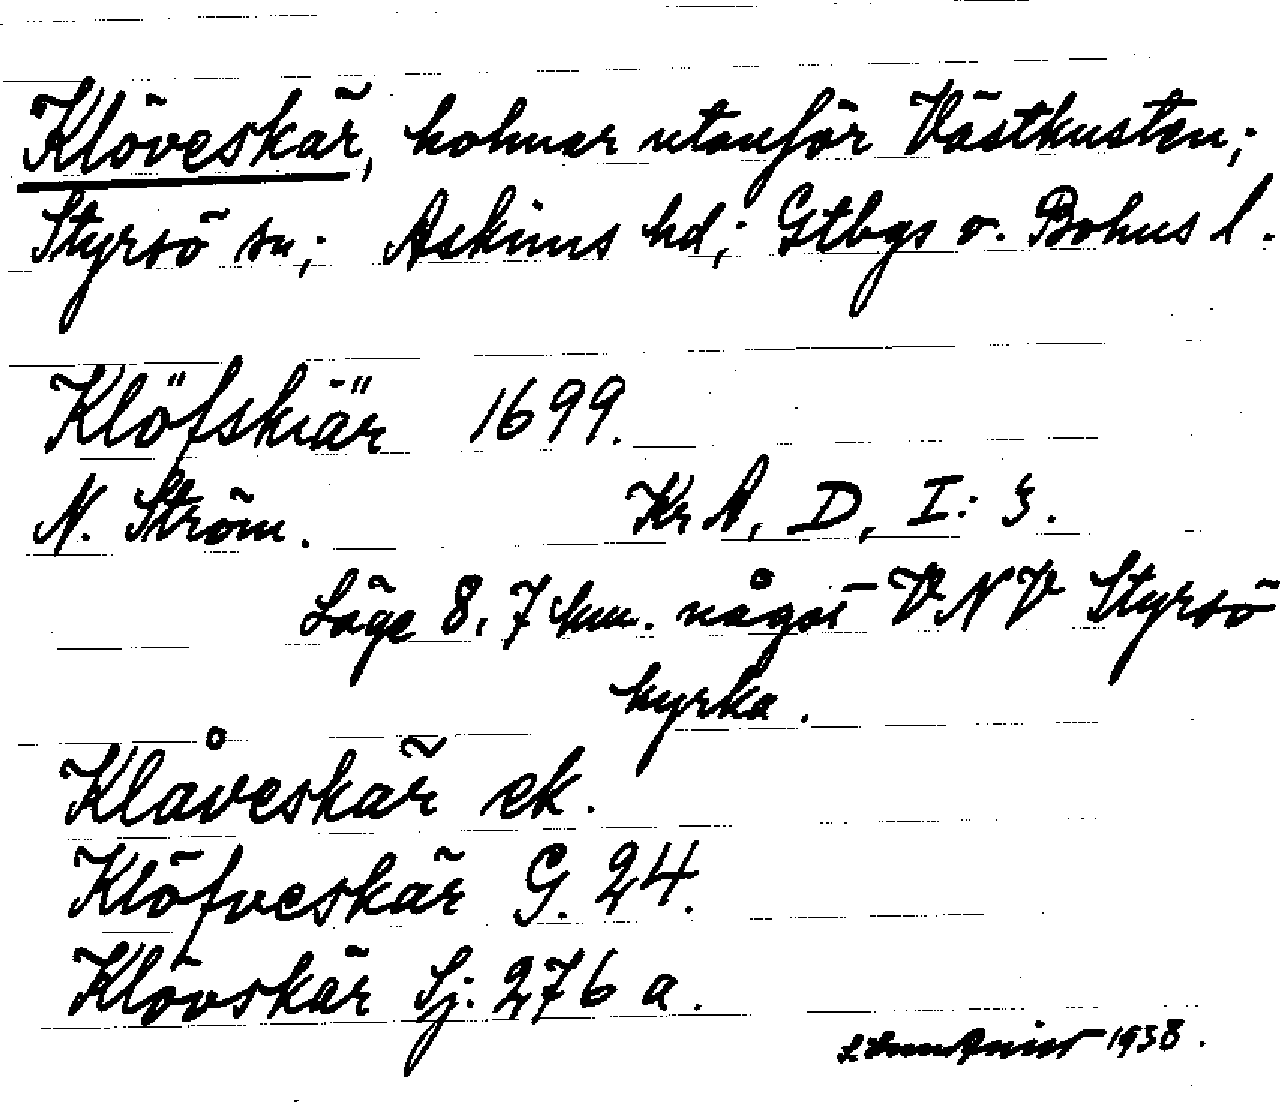 Klöveskär, holmar utanför Västkusten;
Styrsö sn; Askims hd; Gtbgs o. Bohus l.
Klöfskiär 1699.
N. Ström. KrA, D, I: 3.
Läge 8,7 km. något VNV Styrsö
kyrka.
Klåveskär ek.
Klöfveskär G. 24.
Klövskär Sj. 276 a.
1938.